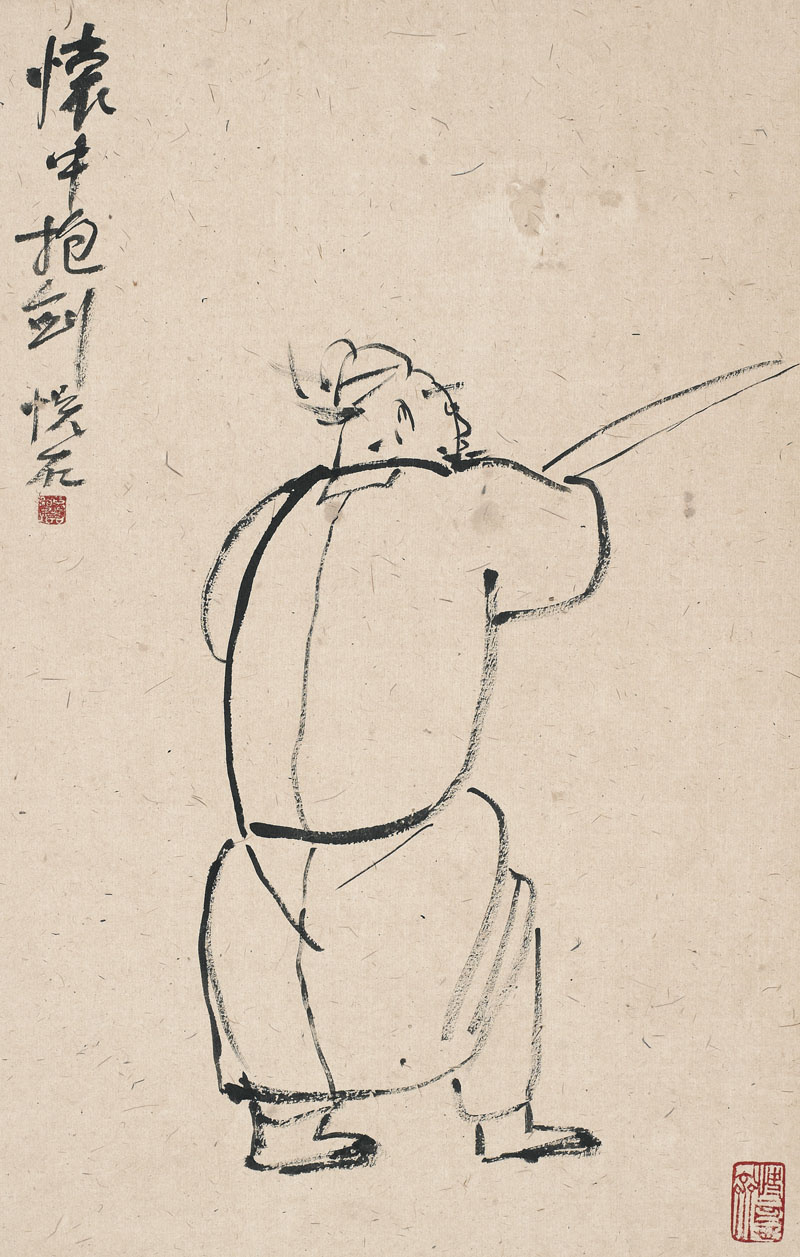 懷中抱劍 悦石